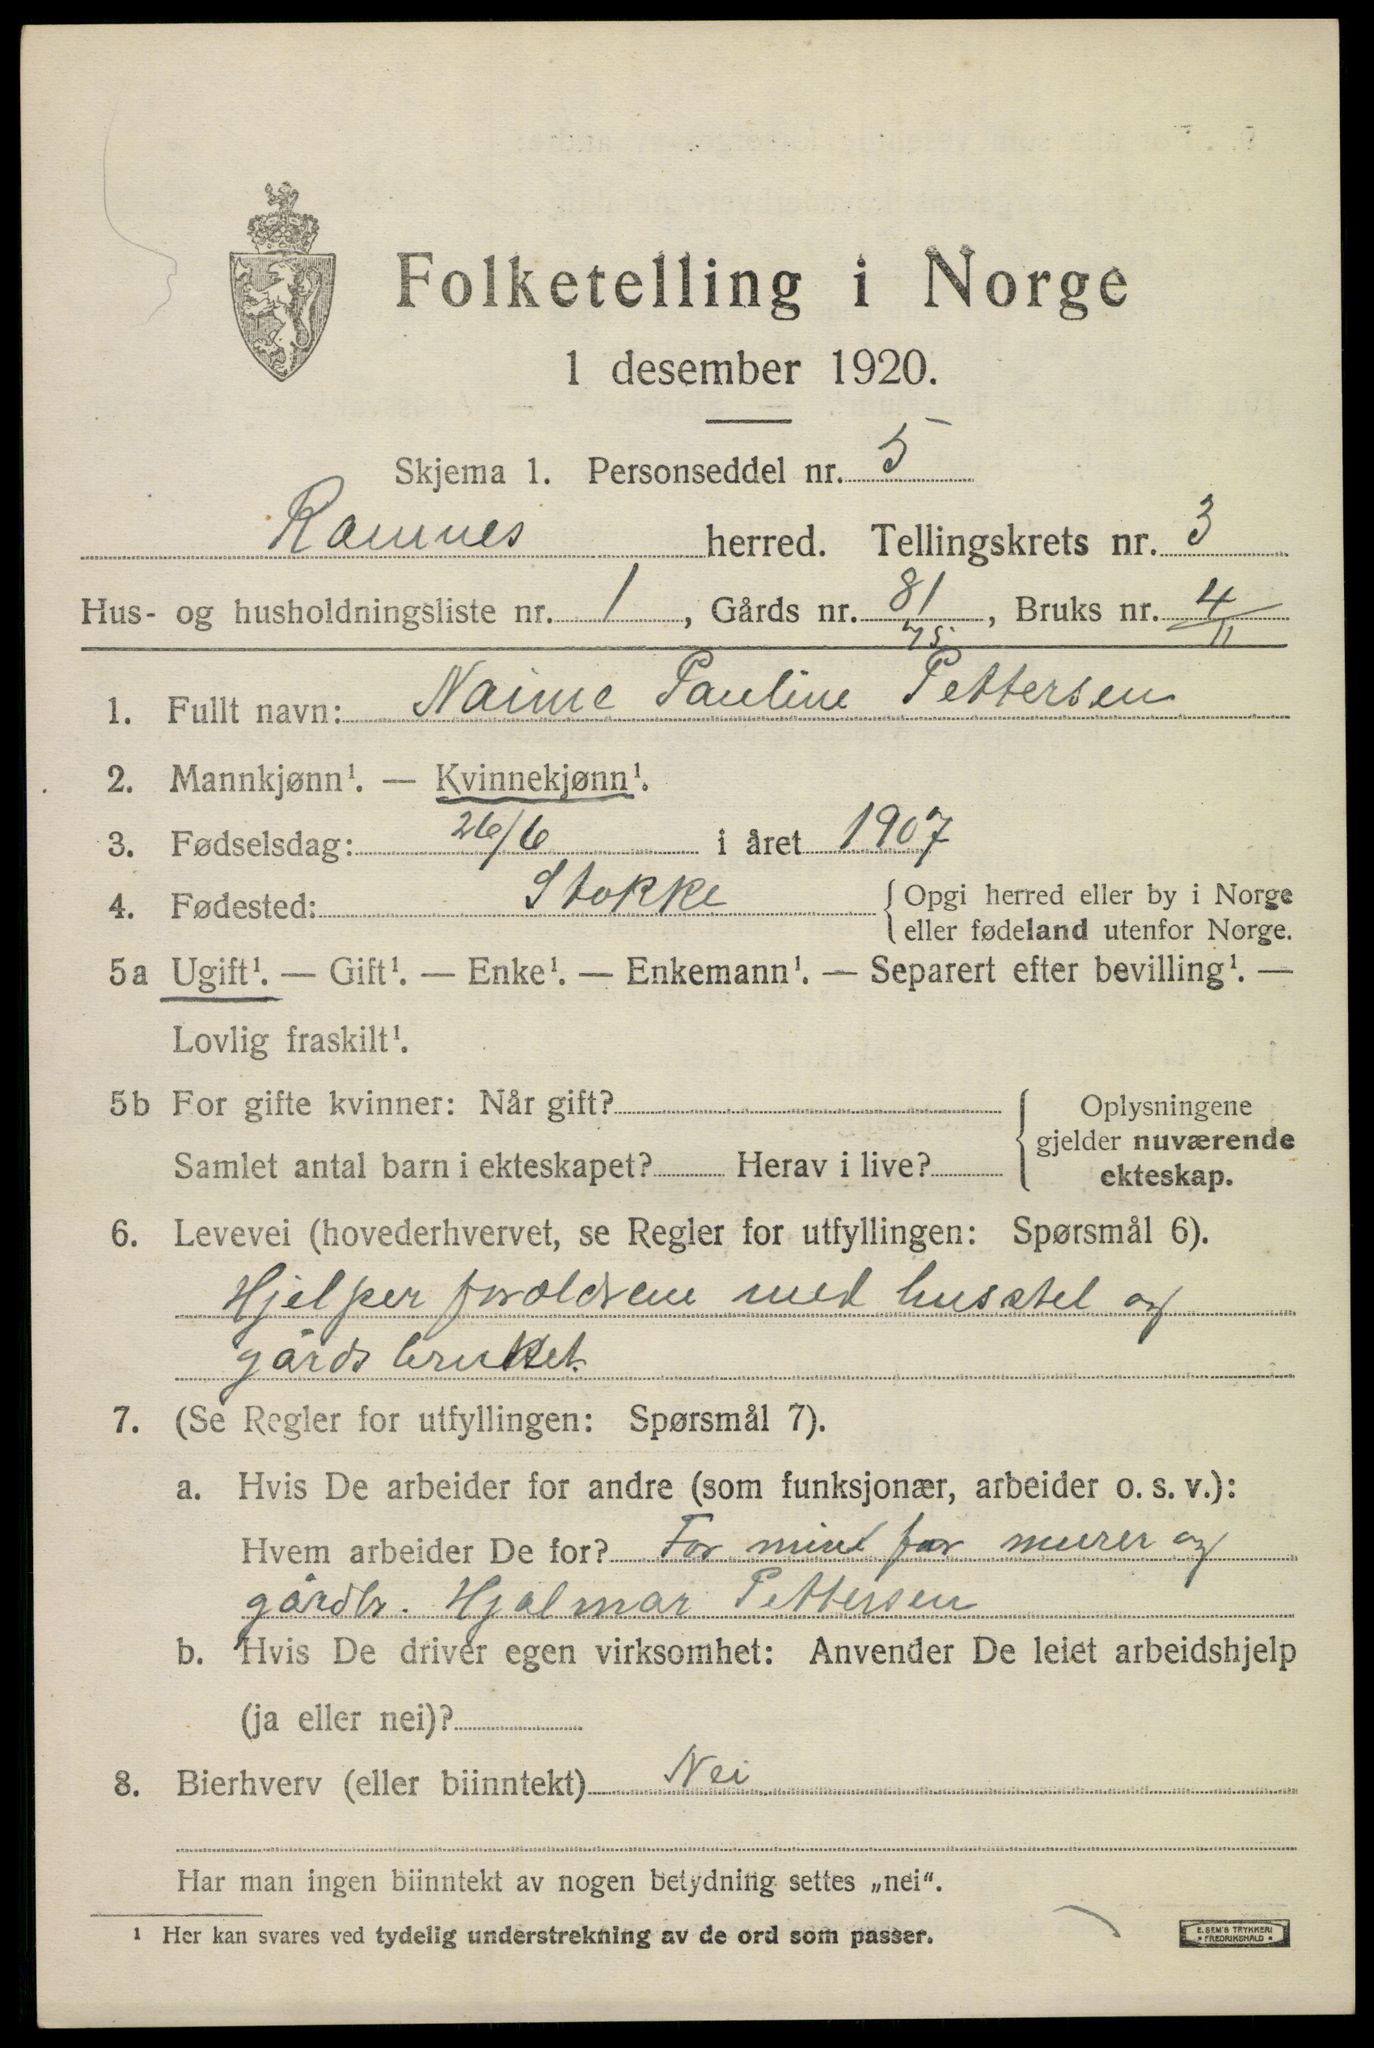 Folketelling i Norge
1 desember 1920.
Skjema 1. Personseddel nr. 5
Ramnes herred. Tellingskrets nr. 3
Hus- og husholdningsliste nr. 1, Gårds nr. 81, Bruks nr. 4
75 11
1. Fullt navn: Naime Pauline Pettersen
2. Mannkjønn¹. — Kvinnekjønn¹.
3. Fødselsdag: 26/6 i året 1907
4. Fødested: Stokke { Opgi herred eller by i Norge
eller fødeland utenfor Norge.
5a Ugift¹. — Gift¹. — Enke¹. — Enkemann¹. — Separert efter bevilling¹. —
Lovlig fraskilt¹.
5b For gifte kvinner: Når gift? { Oplysningene
gjelder nuværende
Samlet antal barn i ekteskapet? Herav i live? ekteskap.
6. Levevei (hovederhvervet, se Regler for utfyllingen: Spørsmål 6).
Hjelper forældrene med husstel og
gårdsbruket.
7. (Se Regler for utfyllingen: Spørsmål 7).
a. Hvis De arbeider for andre (som funksjonær, arbeider o. s. v.):
Hvem arbeider De for? For min far murer og
gårdbr. Hjalmar Pettersen
b. Hvis De driver egen virksomhet: Anvender De leiet arbeidshjelp
(ja eller nei)?
8. Bierhverv (eller biinntekt) Nei
Har man ingen biinntekt av nogen betydning settes „nei“.
¹ Her kan svares ved tydelig understrekning av de ord som passer.
E. SEM'S TRYKKERI
FREDRIKSHALD